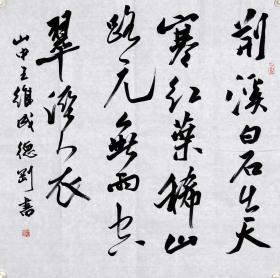 荆溪白石出天
寒红叶稀山
路元无雨空
翠湿人衣
山中王维成德刘书